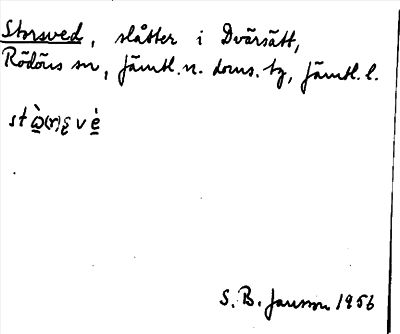 Storsved, slåtter i Dvärsätt,
Rödöns sn, Jämtl. n. doms. tg, Jämtl. l.
st ὼ(r)s̨ v ė
S. B. Jansson 1956